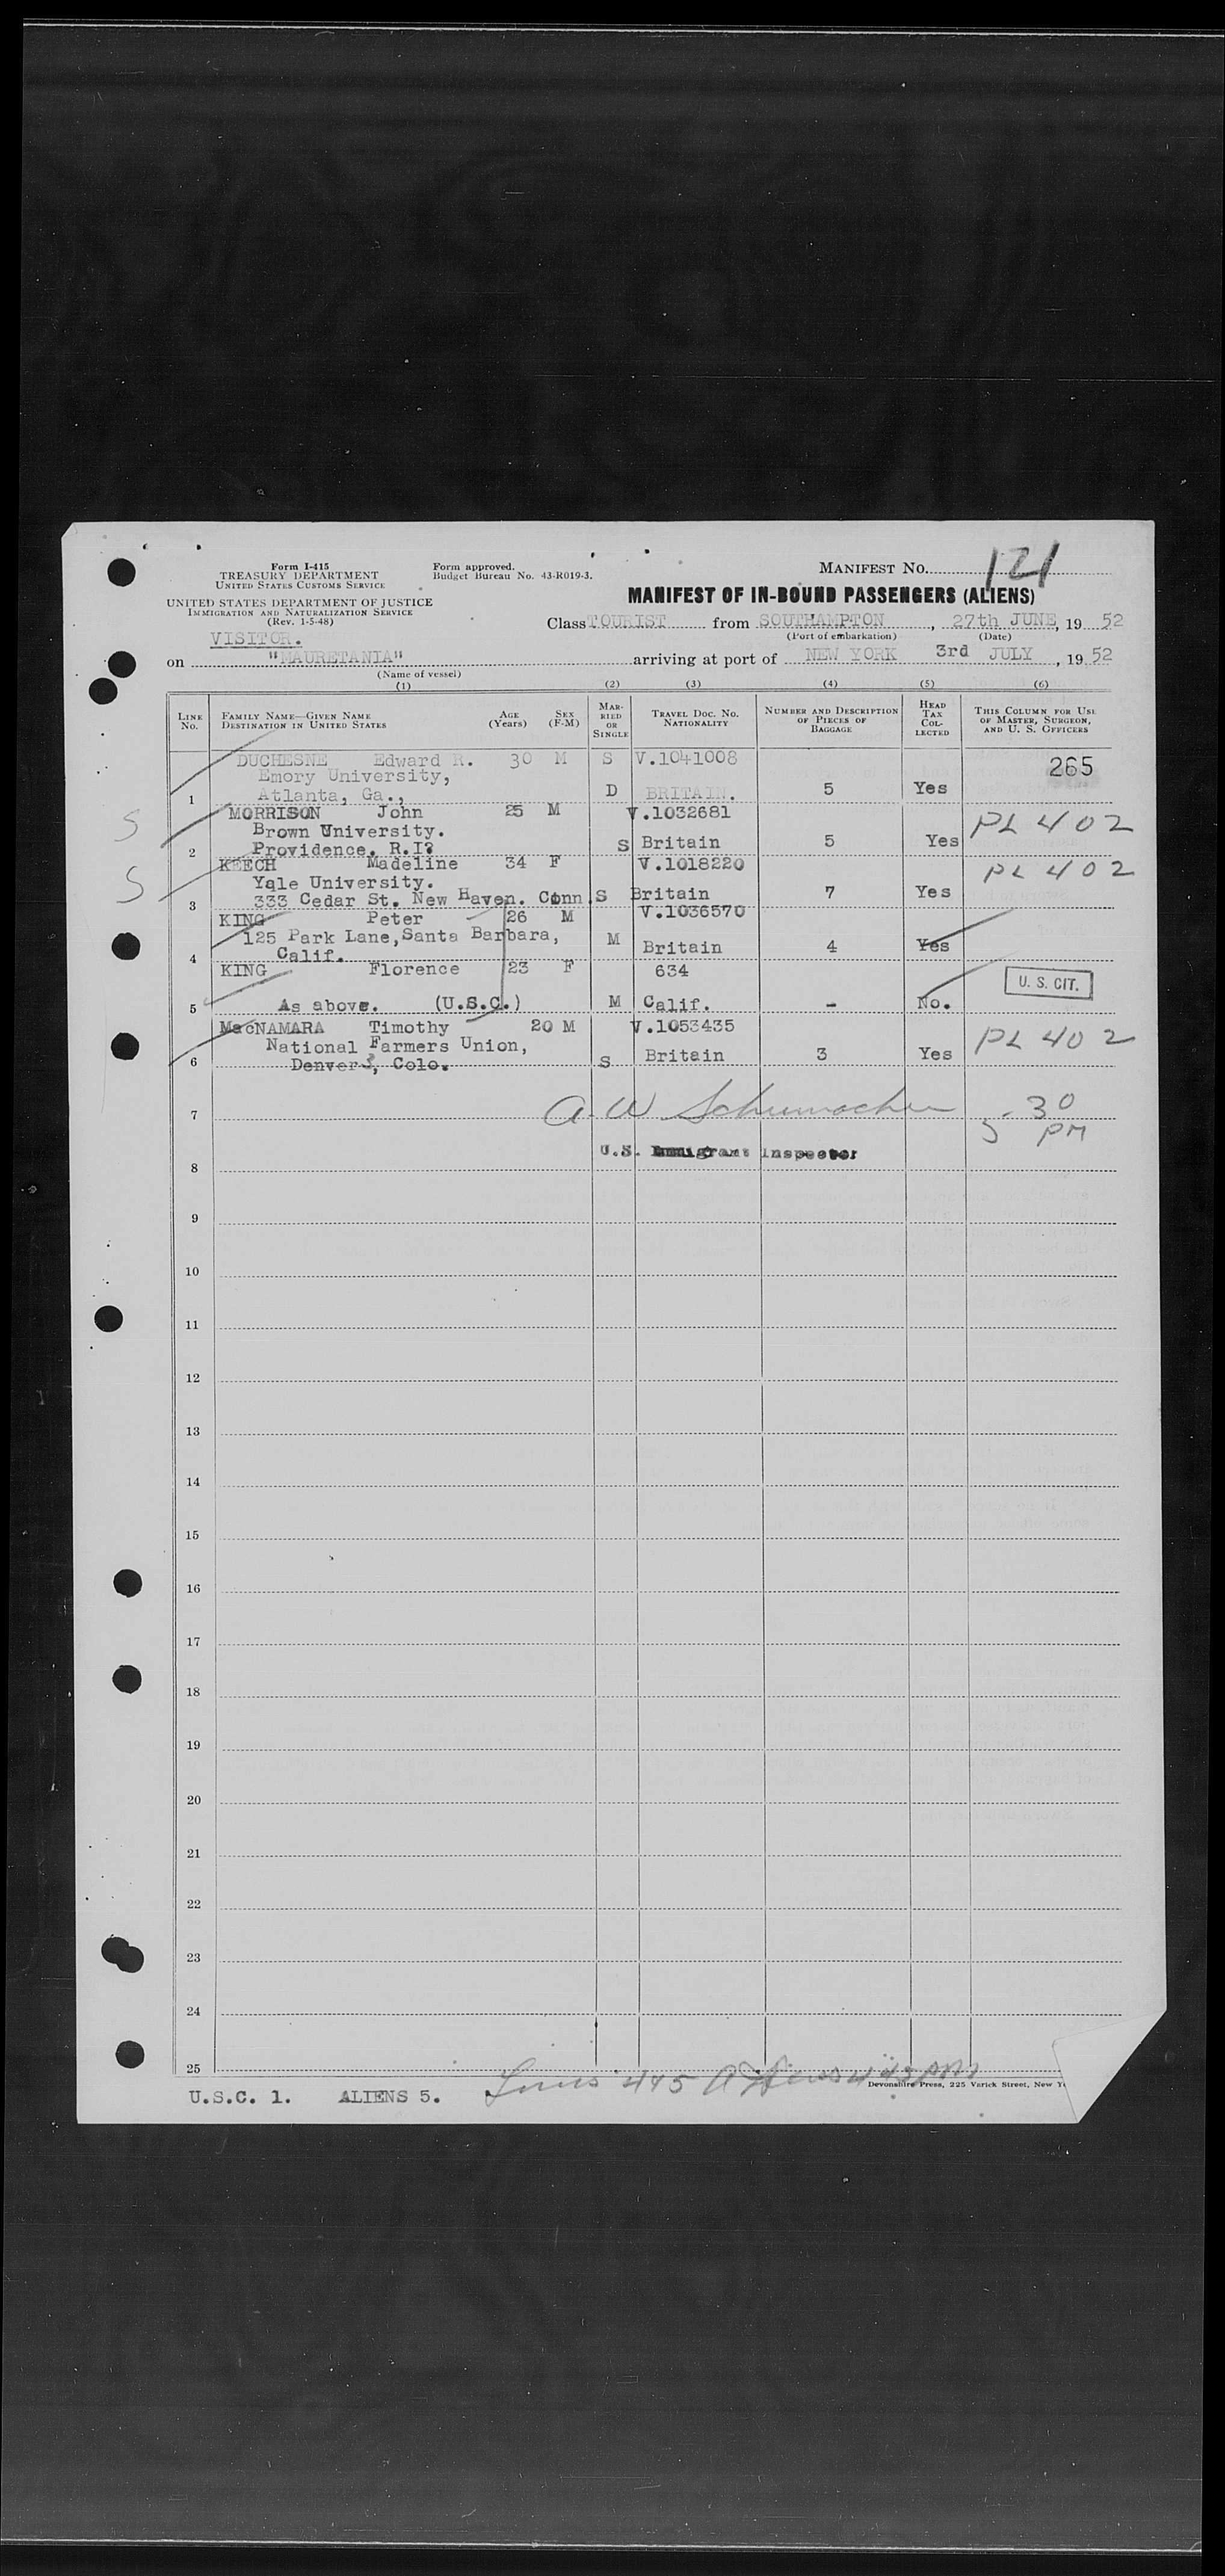 Form I-415
TREASURY DEPARTMENT
UNITED STATES CUSTOMS SERVICE
Form approved.
Budget Bureau No. 43-R019-3.
MANIFEST NO. 121
UNITED STATES DEPARTMENT OF JUSTICE
IMMIGRATION AND NATURALIZATION SERVICE
(Rev. 1-5-48)
MANIFEST OF IN-BOUND PASSENGERS (ALIENS)
VISITOR.
Class TOURIST from SOUTHAMPTON, 27th JUNE, 19 52
(Port of embarkation) (Date)
on "MAURETANIA" arriving at port of NEW YORK 3rd JULY, 19 52
(Name of vessel)
(1) (2) (3) (4) (5) (6)
LINE NO. FAMILY NAME—GIVEN NAME DESTINATION IN UNITED STATES AGE (Years) SEX (F-M) MARRIED OR SINGLE TRAVEL DOC. NO. NATIONALITY NUMBER AND DESCRIPTION OF PIECES OF BAGGAGE HEAD TAX COLLECTED THIS COLUMN FOR USE OF MASTER, SURGEON, AND U. S. OFFICERS
DUCHESNE Edward R. 30 M S V.1041008
Emory University, 265
1 Atlanta, Ga., D BRITAIN. 5 Yes
S MORRISON John 25 M V.1032681
Brown University. PL 402
2 Providence. R.I? S Britain 5 Yes
KEECH Madeline 34 F V.1018220
S Yale University. PL 402
3 333 Cedar St. New Haven. Conn. S Britain 7 Yes
KING Peter 26 M V.1036570
125 Park Lane, Santa Barbara, M
4 Calif. Britain 4 Yes
KING Florence 23 F 634
U. S. CIT.
5 As above. (U.S.C.) M Calif. - No.
MacNAMARA Timothy 20 M V.1053435
National Farmers Union, PL 402
6 Denver, Colo. S Britain 3 Yes
7 A. W Schumacher 5-30 PM
8 U.S. Immigrant Inspector
9
10
11
12
13
14
15
16
17
18
19
20
21
22
23
24
25
Devonshire Press, 225 Varick Street, New Y
U.S.C. 1. ALIENS 5.